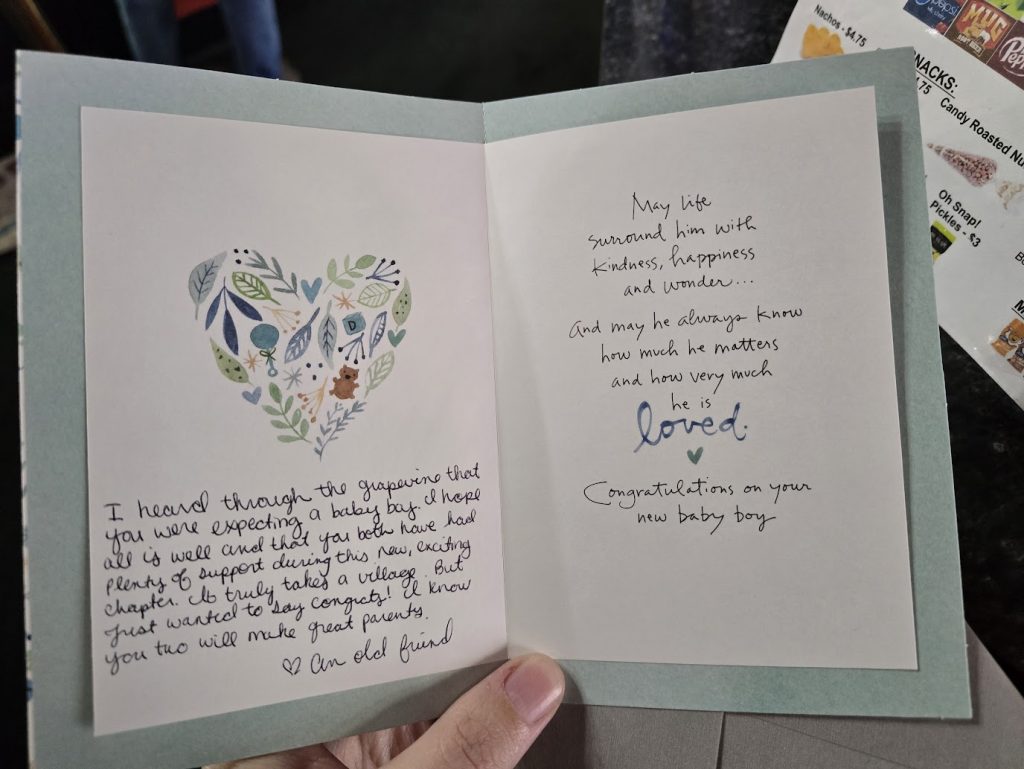 D
I heard through the grapevine that
you were expecting a baby boy. I hope
all is well and that you both have had
plenty of support during this new, exciting
chapter. It truly takes a village. But
just wanted to say congrats! I know
you two will make great parents.
♡ An old friend
May life
surround him with
kindness, happiness
and wonder...
And may he always know
how much he matters
and how very much
he is
loved.
Congratulations on your
new baby boy
Nachos - $4.75
pepsi
MUG
NACKS:
.75
Candy Roasted Nu
Oh Snap!
Pickles - $3